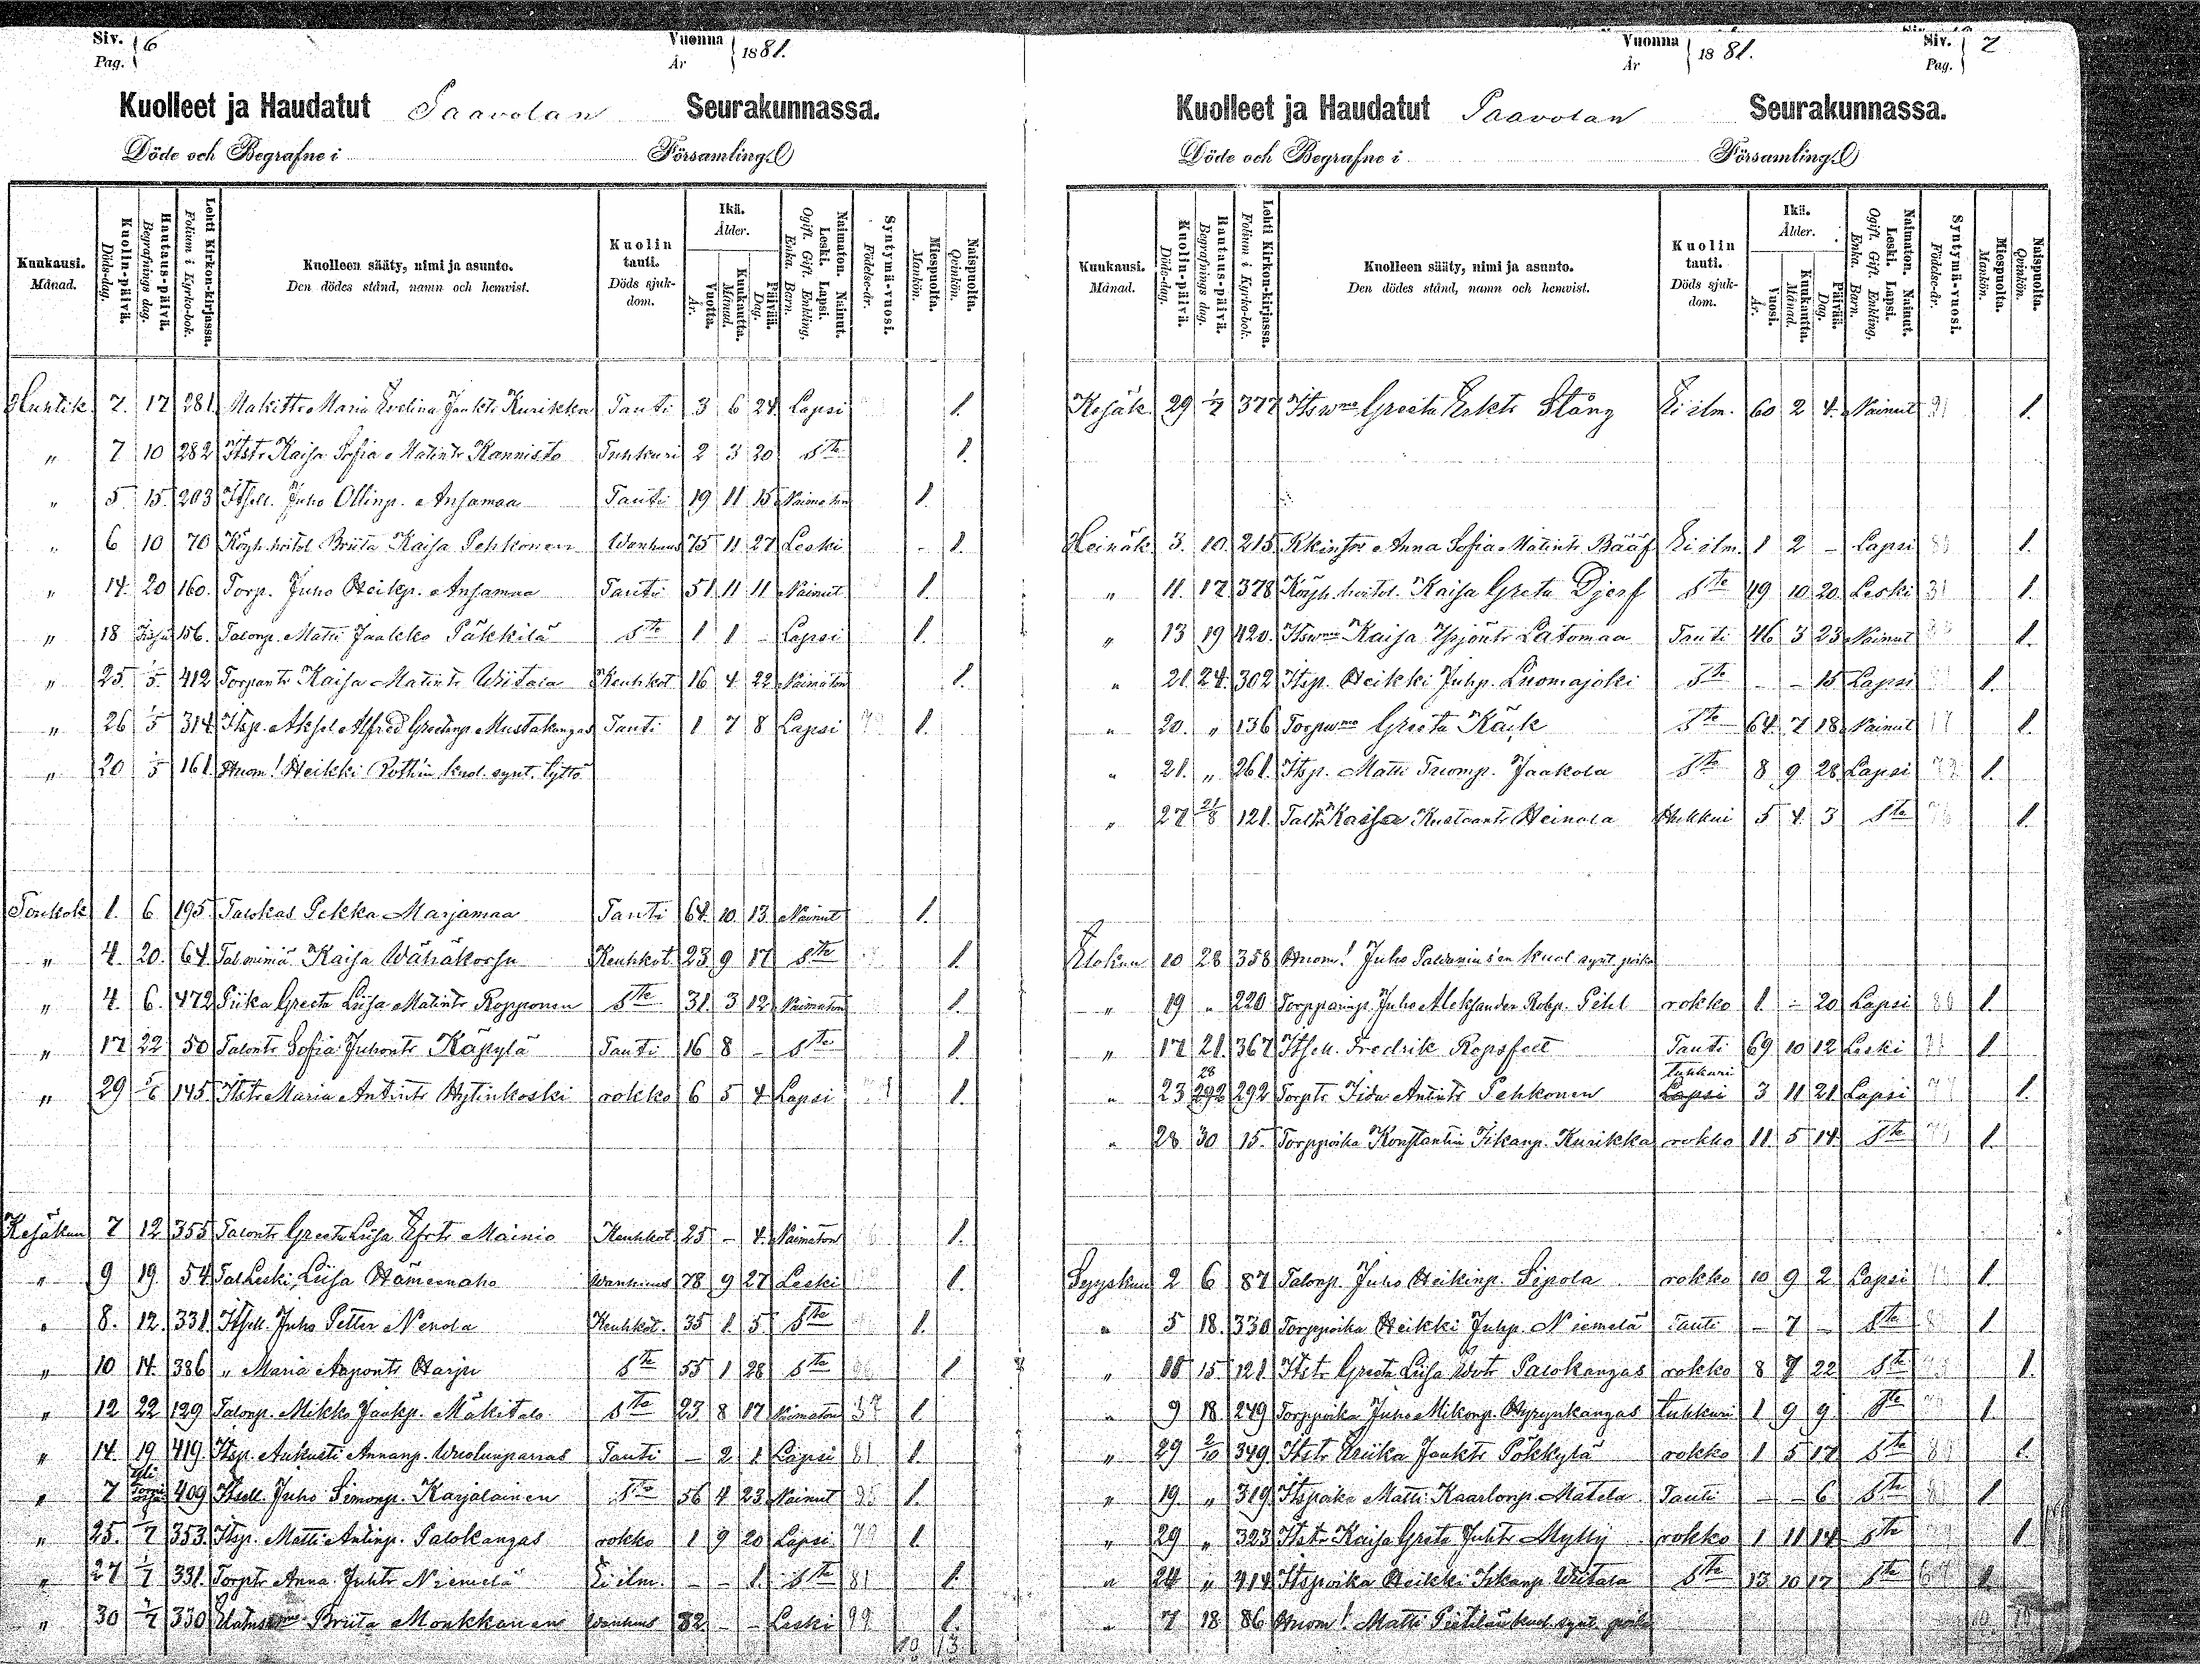 Siv. 6
Pag.
Vuonna 1881.
År
Kuolleet ja Haudatut Paavolan Seurakunnassa.
Döde och Begrafne i Församling
Kuukausi. Månad.
Kuolin-päivä. Döds-dag.
Hautaus-päivä. Begrafnings dag.
Lehti Kirkon-kirjassa. Folium i Kyrko-bok.
Kuolleen sääty, nimi ja asunto. Den dödes stånd, namn och hemvist.
Kuolin tauti. Döds sjuk-dom.
Ikä. Ålder.
Vuotta. År.
Kuukautta. Månad.
Päivää. Dag.
Naimaton. Nainut. Leski. Lapsi. Ogift. Gift. Enkling, Enka. Barn.
Syntymä-vuosi. Födelse-år.
Miespuolta. Mankön.
Naispuolta. Qvinkön.
Huhtik. 7. 17 281. Mäkittr Maria Evelina Jaakktr Kurikka Tauti 3 6 24 Lapsi 1.
" 7 10 282 Itstr Kaisa Sofia Matintr Kannisto Tuhkuri 2 3 20 Sta 1.
" 5 15 203 Itsell. Juho Ollinp. Ansamaa Tauti 19 11 15 Naimaton 1.
" 6 10 70 Köyh. hoitol Briita Kaisa Pehkonen Wanhuus 75 11 27 Leski 1.
" 14. 20 160. Torp. Juho Heikp. Ansamaa Tauti 51 11 11 Nainut 1.
" 18 156. Talonp. Matti Jaakko Päkkilä Sta 1 1 - Lapsi 1.
" 25 1/5 412 Torpantr Kaisa Matintr Wiitala Keuhkot 16 4 22 Naimaton 1.
" 26 1/5 314 Itsp. Aksel Alfred Mustakangas Tauti 1 7 8 Lapsi 1.
" 20 1/5 161. Huom! Heikki kuol. synt. tyttö
Toukok 1. 6 195 Talokas Pekka Marjamaa Tauti 64 10 13 Nainut 1.
" 4. 20. 64 Tal miniä Kaisa Wähäkorsu Keuhkot 23 9 17 Sta 1.
" 4. 6. 472 Piika Greeta Liisa Matintr Ropponen Sta 31. 3 12 Naimaton 1.
" 17 22 50 Talontr Sofia Juhontr Käpylä Tauti 16 8 - Sta 1.
" 29 5/6 145 Itstr Maria Antintr Hytinkoski rokko 6 5 4 Lapsi 1.
Kesäkuu 7 12 355 Talontr Greeta Liisa Efrtr Mainio Keuhkot 25 - 4 Naimaton 1.
" 9 19 54 Tal Leski Liisa Hämeenaho Wanhuus 78 9 27 Leski 1.
" 8. 12. 331. Itsell. Juho Petter Nenola Keuhkot. 35 1 5 Sta 1.
" 10 14. 386 " Maria Aapontr Harju Sta 55 1 28 Sta 1.
" 12 22 129 Talonp. Mikko Jaakp. Mäkitalo Sta 23 8 17 Naimaton 57 1.
" 14. 19 419. Itsp. Aukusti Annanp. Wuolunparras Tauti - 2 1 Lapsi 81 1.
" 7 409 Itsell. Juho Simonp. Karjalainen Sta 56 4 23 Nainut 1.
" 25. 1/7 353. Itsp. Matti Antinp. Palokangas rokko 1 9 20 Lapsi 79 1.
" 27 1/7 331. Torptr Anna Juhtr Niemelä Ei ilm. - - 1. Sta 81 1.
" 30 1/7 330 Briita Monkkanen Wanhuus 82 - - Leski 99 1.
10 13
Vuonna 1881.
År
Siv. 7
Pag.
Kuolleet ja Haudatut Paavolan Seurakunnassa.
Döde och Begrafne i Församling
Kuukausi. Månad.
Kuolin-päivä. Döds-dag.
Hautaus-päivä. Begrafnings dag.
Lehti Kirkon-kirjassa. Folium i Kyrko-bok.
Kuolleen sääty, nimi ja asunto. Den dödes stånd, namn och hemvist.
Kuolin tauti. Döds sjuk-dom.
Ikä. Ålder.
Vuosi. År.
Kuukautta. Månad.
Päivää. Dag.
Naimaton. Nainut. Leski. Lapsi. Ogift. Gift. Enkling, Enka. Barn.
Syntymä-vuosi. Födelse-år.
Miespuolta. Mankön.
Naispuolta. Qvinkön.
Kesäk. 29 1/7 377 Itswmo Greeta Erktr Stång Ei ilm. 60 2 4. Nainut 21 1.
Heinäk 3. 10. 215 Anna Sofia Matintr Bääf Ei ilm. 1 2 - Lapsi 80 1.
" 11. 17 378 Köyh. hoitol. Kaisa Greta Djerf Sta 49 10 20 Leski 31 1.
" 13 19 420. Itswmo Kaisa Yrjöntr Latomaa Tauti 46 3 23 Nainut 1.
" 21. 24. 302 Itsp. Heikki Juhp. Luomajoki Sta - - 15 Lapsi 1.
" 20. " 136 Torpwmo Greeta Käck Sta 64. 7 18 Nainut 17 1.
" 21. " 261. Itsp. Matti Tuomp. Jaakola Sta 8 9 28 Lapsi 72 1.
" 27 21/8 121. Taltr Kaisa Kustaantr Heinola 5 4 3 Sta 1.
Elokuu 10 28 358 Huom! Juho kuol. synt. poika
" 19 " 220 Juho Aleksander Pihl rokko 1. - 20 Lapsi 80 1.
" 17 21. 367 Itsell. Fredrik Repsfelt Tauti 69 10 12 Leski 1
" 23 28 292 Torptr Iida Antintr Pehkonen tuhkuri 3 11 21 Lapsi 77 1.
" 28 30 15. Torppoika Konstantin Iikanp. Kurikka rokko 11. 5 14 Sta 1.
Syyskuu 2 6 87 Talonp. Juho Heikinp. Sipola rokko 10 9 2 Lapsi 1.
" 5 18. 330 Torppoika Heikki Juhp. Niemelä Tauti - 7 - Sta 1
" 10 15. 121 Itstr Greeta Liisa Palokangas rokko 8 7 22 Sta 1.
" 9 18 249 Torppoika Juho Mikonp. Hyrynkangas tuhkuri 1 9 9 Sta 1.
" 29 2/10 349 Itstr Eriika Jaaktr Pökkylä rokko 1 5 17 Sta 1.
" 19. " 319 Itspoika Matti Kaarlonp. Matela Tauti - - 6 Sta 1
" 29 " 323 Itstr Kaisa Greta Juhtr Mylly rokko 1 11 14 Sta 1
" 24 " 414 Itspoika Heikki Iikanp. Wiitala Sta 13 10 17 Sta 1
" 7 18 86 Huom! Matti kuol. synt. poika
10 10